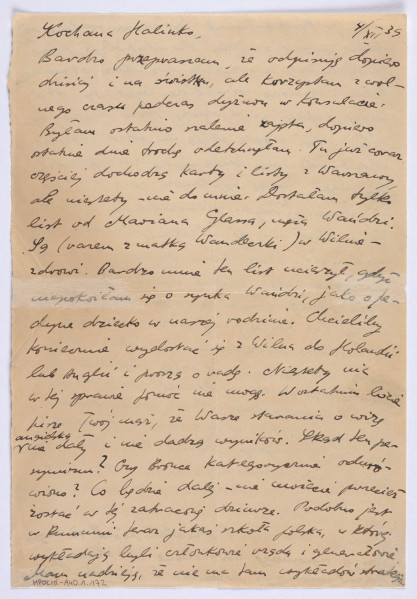 Kochana Halinko,
4/XII 39
Bardzo przepraszam, że odpisuję dopiero
dzisiaj i na świstku, ale korzystam z wol-
nego czasu podczas dyżuru w Konsulacie.
Byłam ostatnio szalenie zajęta, dopiero
ostatnie dnie trochę odetchnęłam. Tu już coraz
częściej dochodzą karty i listy z Warszawy
ale niestety nie do mnie. Dostałam tylko
list od Mariana Glassa, męża Wandzi.
Są (razem z matką) w Wilnie –
zdrowi. Bardzo mnie ten list ucieszył, gdyż
niepokoiłam się o synka Wandzi, jako o je-
dyne dziecko w naszej rodzinie. Chcieliby
koniecznie wydostać się z Wilna do Holandii
lub Anglii i proszą o radę. Niestety nic
w tej sprawie pomóc nie mogę. W ostatnim liście
pisze Twój mąż, że Wasze starania o wizy
angielską
nie dały i nie dadzą wyników. Skąd ten pe-
symizm? Czy Brońce kategorycznie odmó-
wiono? Co będzie dalej – nie możecie przecież
zostać w tej zatraconej dziurze. Podobno jest
w Rumunii teraz jakaś szkoła polska, w której
wykładają byli członkowie rządu i generałowie
Mam nadzieję, że nie ma tam wykładów strategii
MPOLIN-A40.1.172